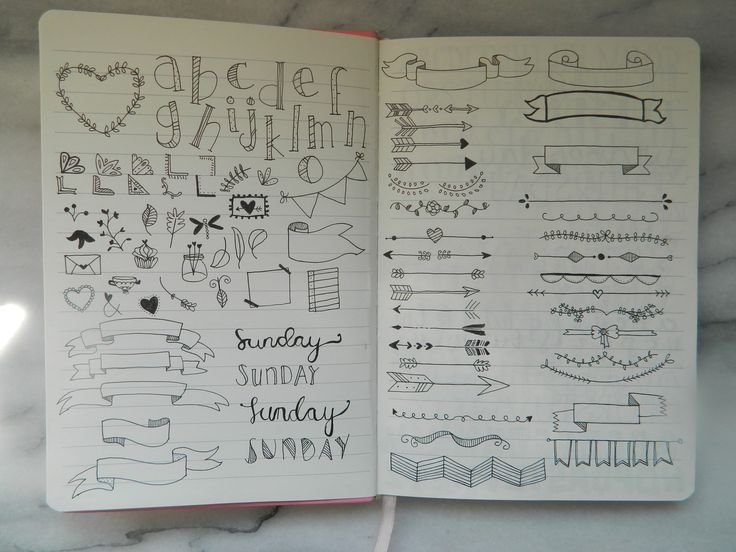 a b c d e f
g h i j k l m n
o
&
Sunday
SUNDAY
Sunday
SUNDAY